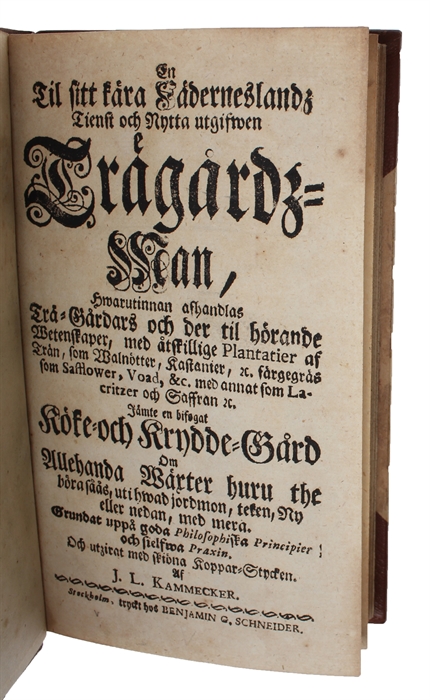 En
Til sitt kära Fäderneslandz
Tienst och Nytta utgifwen
Trägårdz-
Man,
Hwarutinnan afhandlas
Trä-Gårdars och der til hörande
Wetenskaper, med åtskillige Plantatier af
Trän, som Walnötter, Kastanier, ꝛc. färgegräs
som Safflower, Voad, &c. med annat som La-
critzer och Saffran ꝛc.
Jämte en bifogat
Köke-och Krydde-Gård
Om
Allehanda Wäxter huru the
böra såås, uti hwad jordmon, teken, Ny
eller nedan, med mera.
Grundat uppå goda Philosophiska Principier
och sielfwa Praxin.
Och utzirat med sköna Koppar-Stycken.
Af
J. L. KAMMECKER.
Stockholm, tryckt hos BENJAMIN G. SCHNEIDER.